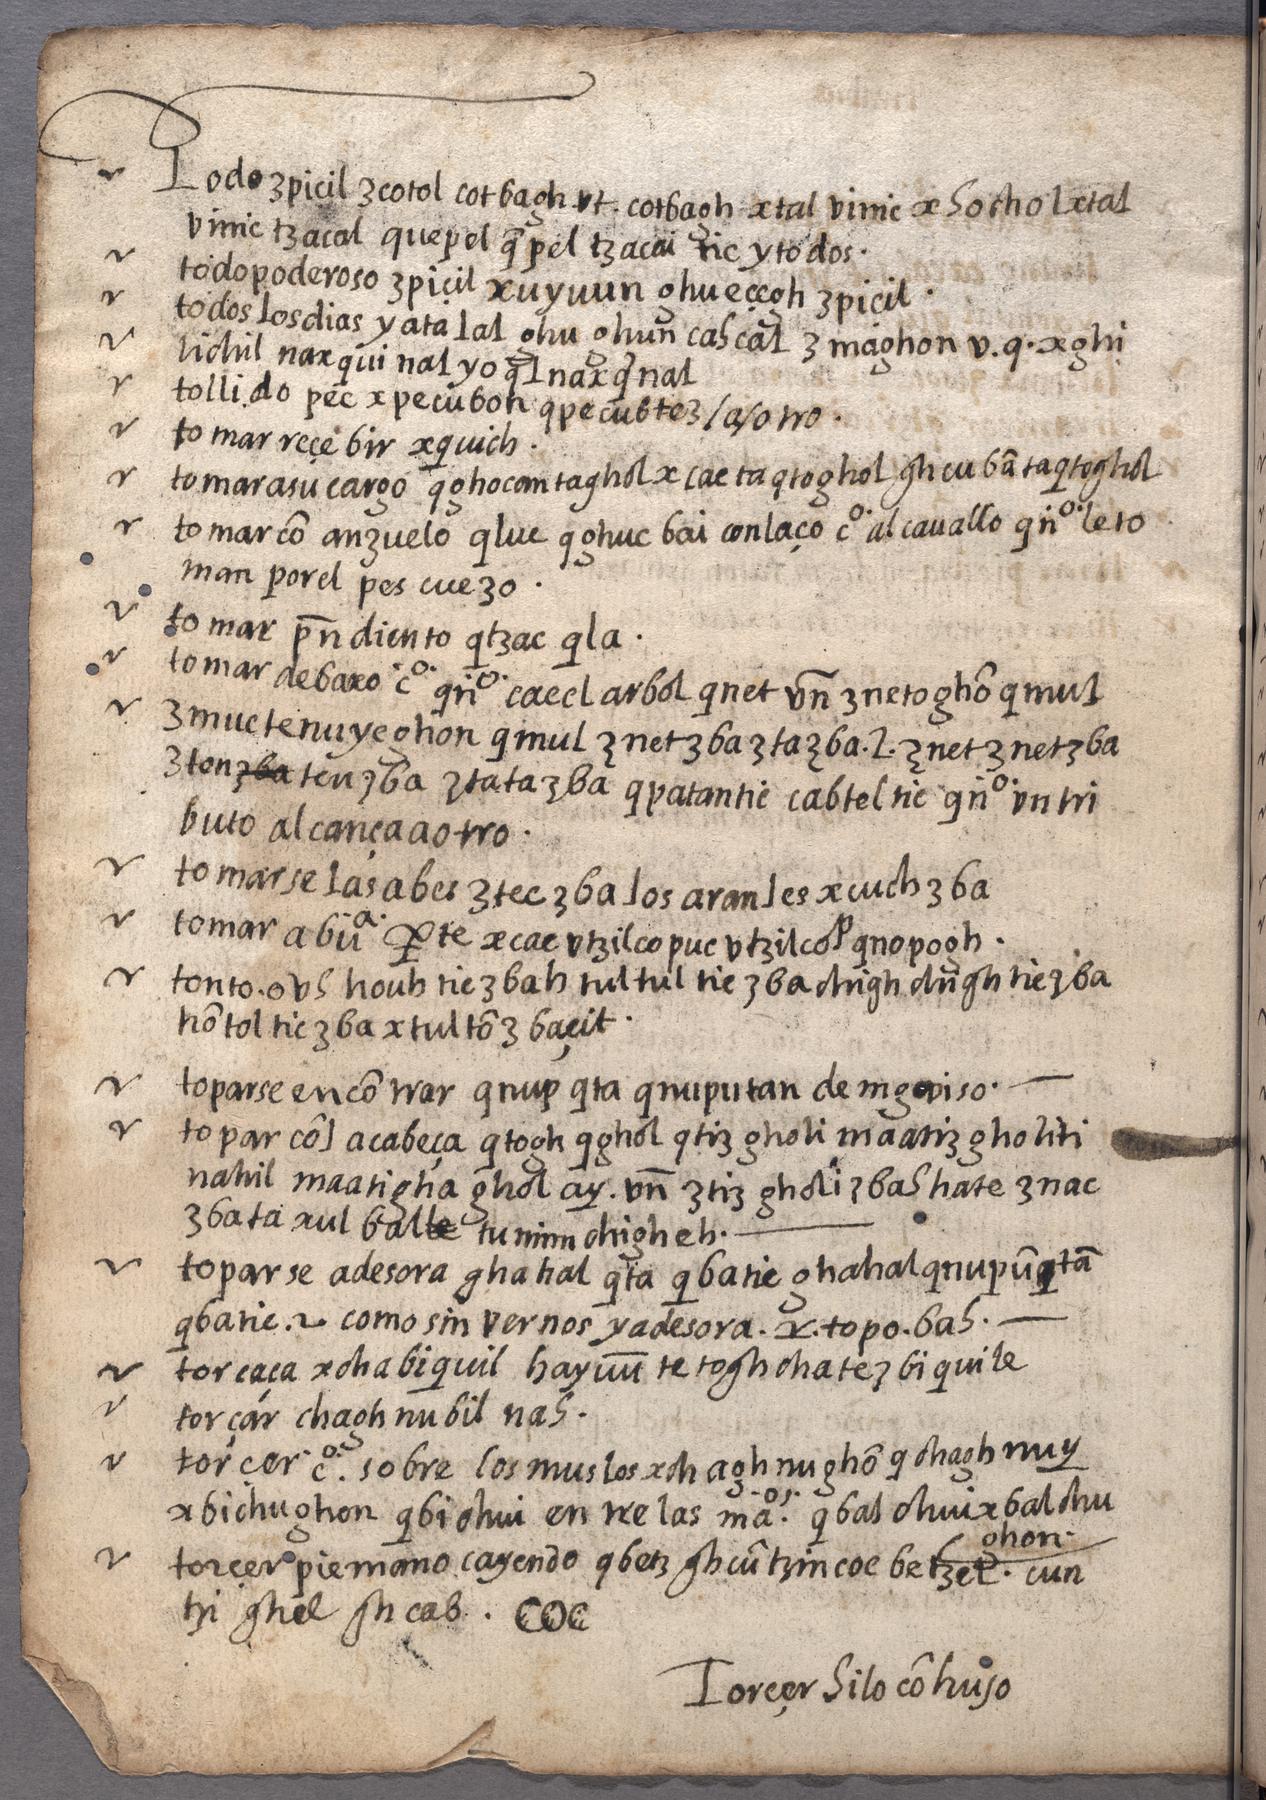 Todo ʒpiçil ʒcotol cotbagh vt. cotbagh xtal vinic xhocholxtal
vinic tʒacal quepel q̃pel tʒacai tic y todos.
todopoderoso ʒpiçil xuyuun ghueçegh ʒpiçil.
todos los dias yatalal ghu ghun cahcal ʒ maghon v. q. xghi
lichil naxqui nal yo q̃l naxq̃nal
tollido pec xpecubon qpecubteʒ /a/ otro.
tomar reçebir xquich.
tomar a su cargo qghocom taghol xcae ta qtoghol gh cubã taqtoghol
tomar cõ anʒuelo qluc qghuc bai con laço c̃o. al cavallo qño. le to
man por el pescueʒo.
tomar pñdiento qtʒac qla.
tomar debaxo c̃o. qño. cae el arbol qnet vñ ʒnetoghõ qmul
ʒmuctenuyeghon qmul ʒnetʒba ʒtaʒba. l. ʒnet ʒnetʒba
ʒtonʒba tenʒba ʒtataʒba qpatantic cabtel tic qño. vn tri
buto alcança a otro.
tomarse las abes ʒtec ʒba los aranles xcuch ʒba
tomar a buã. pte xcae vtʒilcopuc vtʒilcop qnopogh.
tonto. o vh houh tic ʒbah tultul tic ʒba chigh chigh tic ʒba
hõtol tic ʒba xtultõ ʒbaçit.
toparse encõtrar qnup qta qnuputan de mgoviso.
topar cõ l a cabeça qtogh qghol qtiʒ gholi maatiʒ gholiti
nahil maatigha ghol ay. vñ ʒtiʒ gholi ʒbah hate ʒnac
ʒbata xul balte tu nim chigheh.
toparse adesora ghahal qta qbatic ghahal qnupũqtã
qbatic. como sin vernos y adesora. x. topo. bah.
torcaça xchabiquil hayuũ te togh chateʒ biquile
torçar chagh nubil nah.
torcer c̃o. sobre los muslos xchagh nughõ qchagh nuy
xbichughon qbichui entre las mãos. qbal chui xbalchu
ghon.
torçer pie mano cayendo qbetʒ gh cũtʒin coc betʒel. cun
tʒi ghel gh cab. coc
Torçer hilo cõ huso